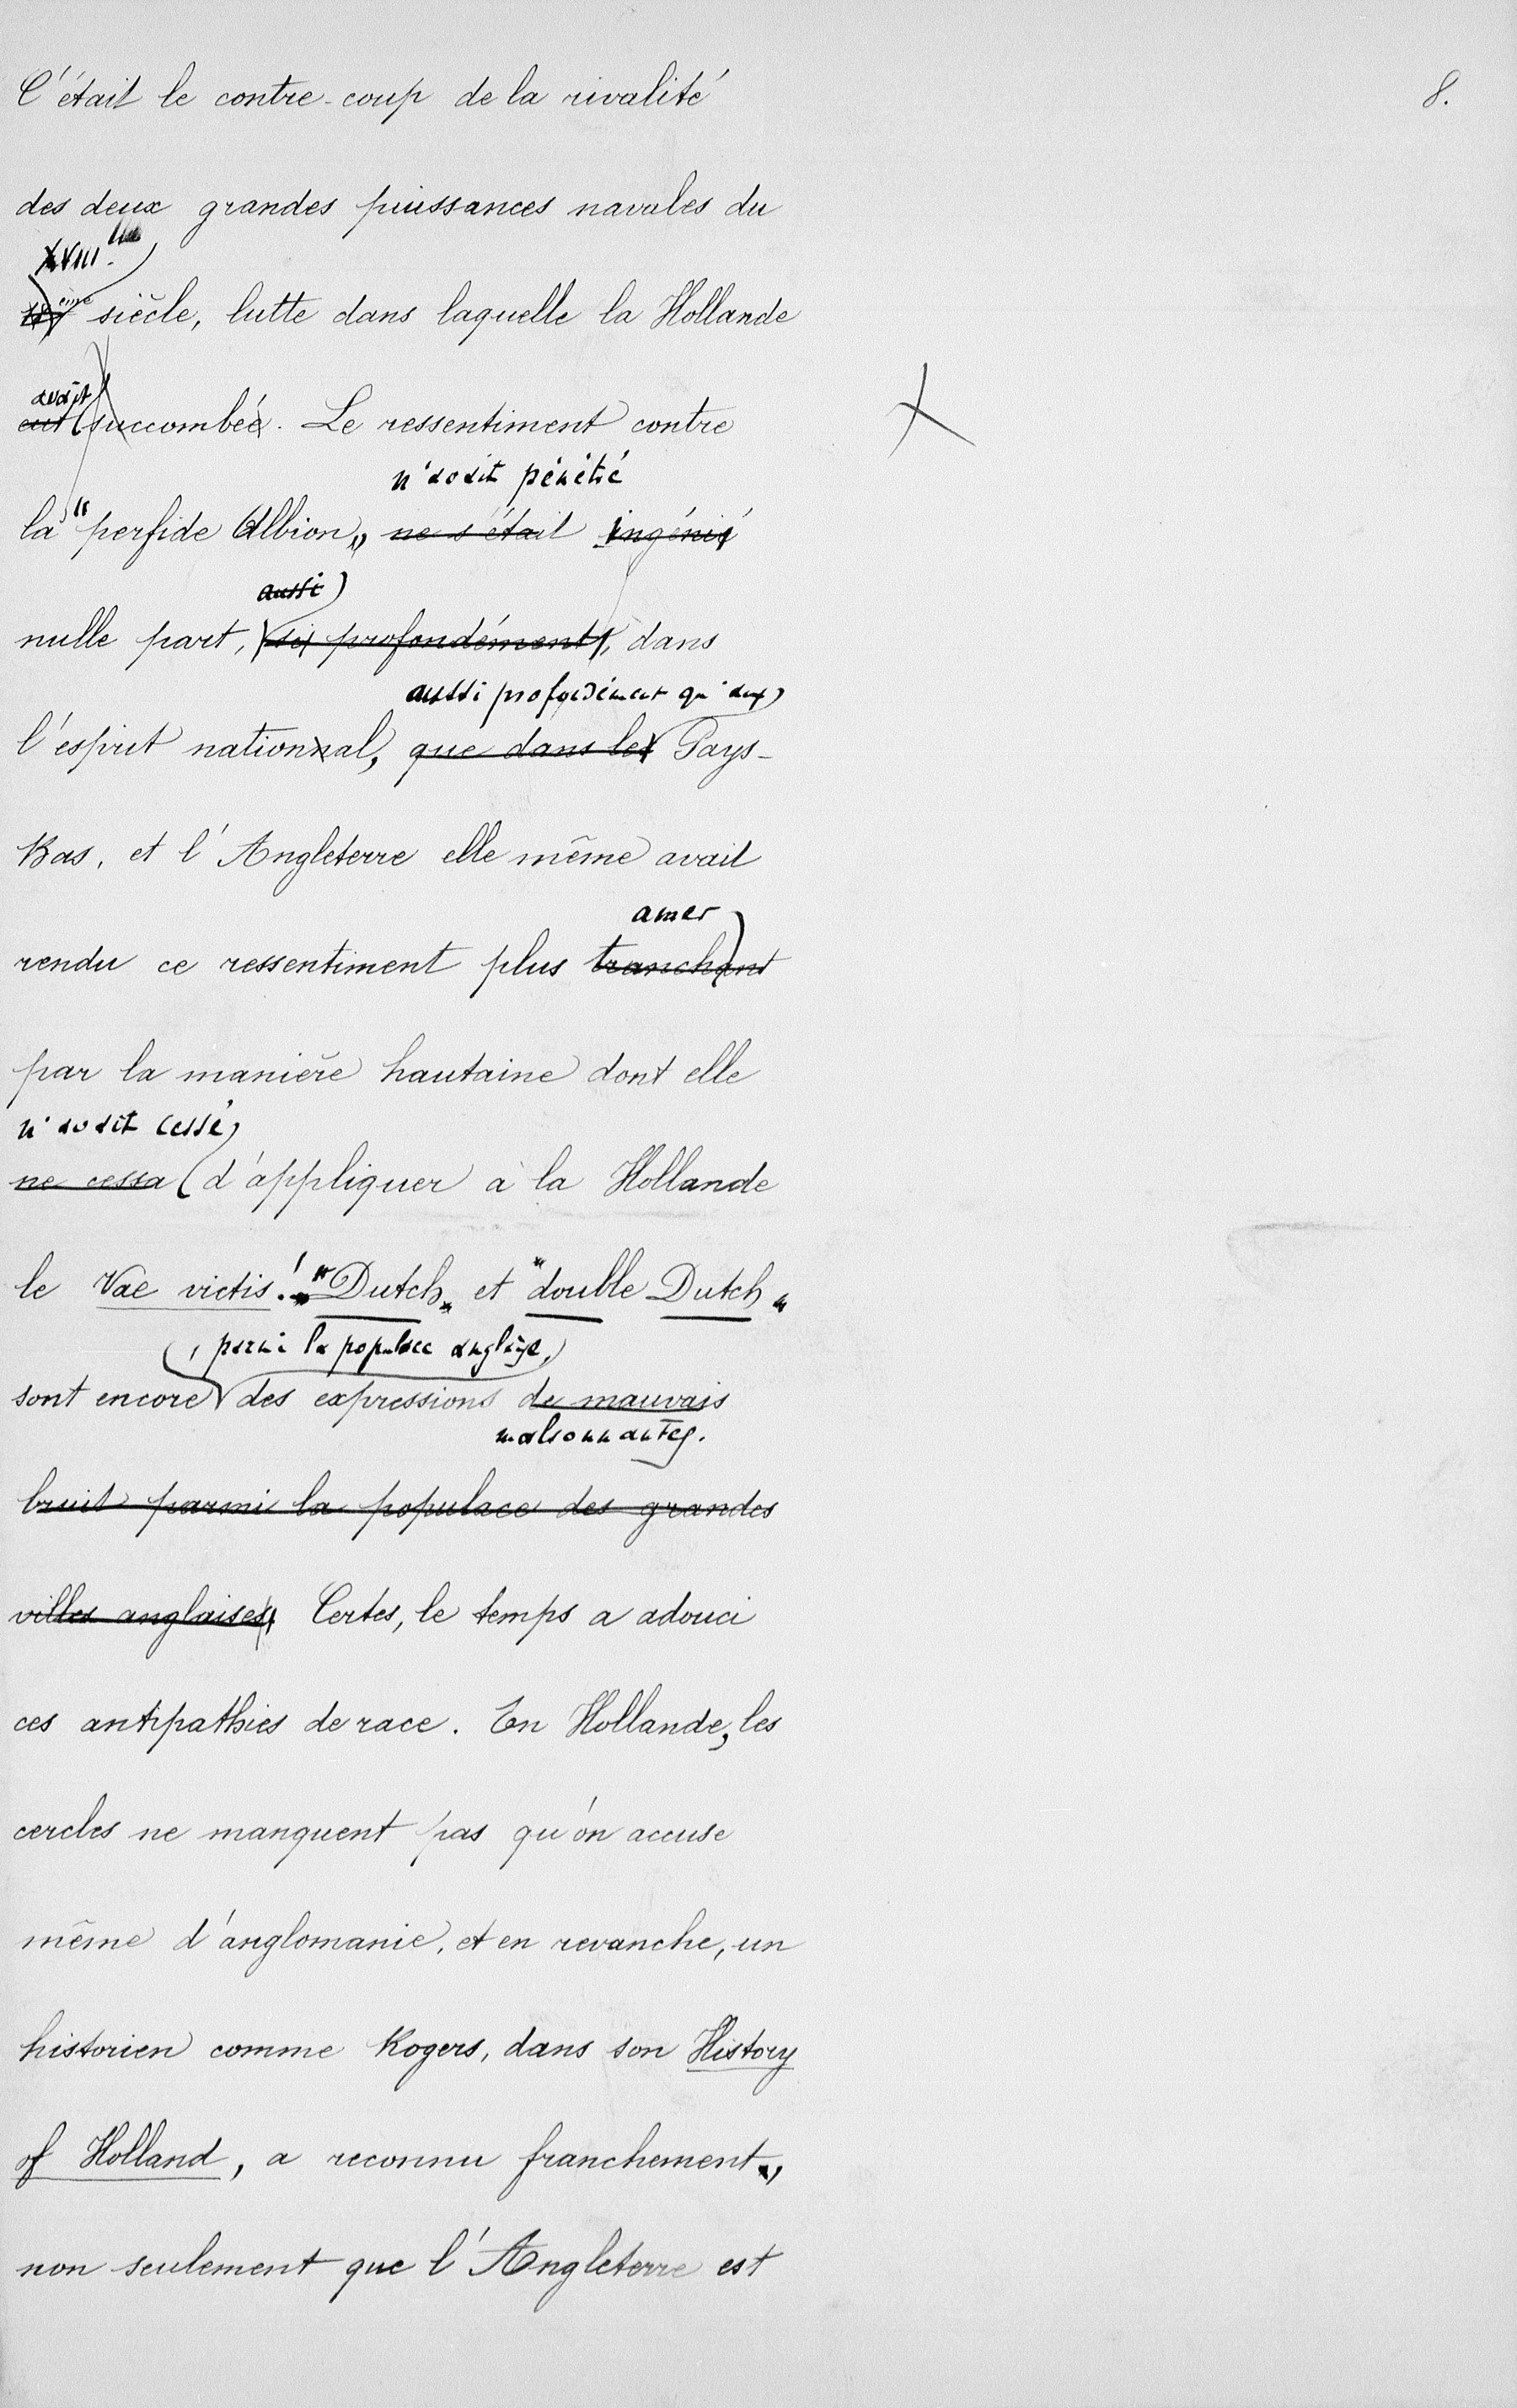 C'était le contre-coup de la rivalité
8.
des deux grandes puissances navales du
XVIII.
ème siècle, lutte dans laquelle la Hollande
avait
eut succombée. Le ressentiment contre
n'avait pénétré
la "perfide Albion„ ne s'était ingénié
aussi
nulle part, si profondément, dans
aussi profondément qu'aux
l'esprit nationnal, que dans les Pays-
Bas, et l'Angleterre elle même avait
amer
rendu ce ressentiment plus tranchant
par la manière hautaine dont elle
n'avait cessé
ne cessa d'appliquer à la Hollande
le Vae victis! "Dutch„ et "double Dutch„
, parmi la populace anglaise,
sont encore des expressions de mauvais
malsonnantes.
bruit parmi la populace des grandes
villes anglaises. Certes, le temps a adouci
ces antipathies de race. En Hollande, les
cercles ne manquent pas qu'on accuse
même d'anglomanie, et en revanche, un
historien comme Rogers, dans son History
of Holland, a reconnu franchement,
non seulement que l'Angleterre est